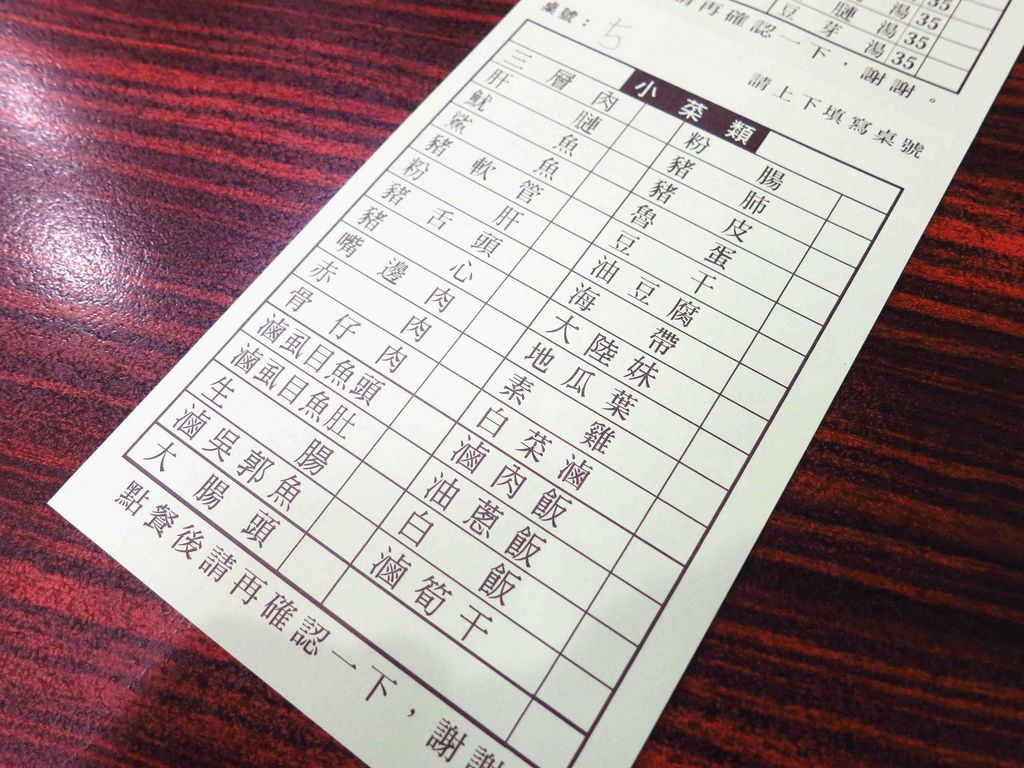 湯 35
湯 35
豆芽湯 35
請再確認一下，謝謝。
請上下填寫桌號
桌號：5
小菜類
三層肉 粉腸
肝 豬肺
魷魚 豬皮
鯊魚 魯蛋
豬軟管 豆干
粉肝 油豆腐
豬舌頭 海帶
豬心 大陸妹
嘴邊肉 地瓜葉
赤肉 素雞
骨仔肉 白菜滷
滷虱目魚頭 滷肉飯
滷虱目魚肚 油蔥飯
生腸 白飯
滷吳郭魚 滷筍干
大腸頭
點餐後請再確認一下，謝謝